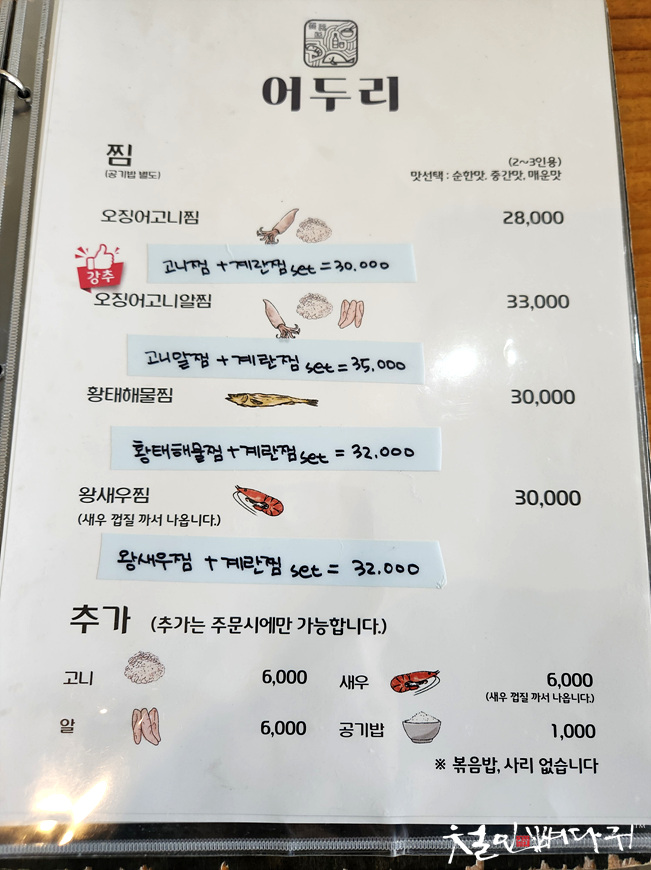 어두리
찜
(공기밥 별도)
(2~3인용)
맛선택 : 순한맛, 중간맛, 매운맛
오징어고니찜 28,000
강추
고니찜 + 계란찜 set = 30.000
오징어고니알찜 33,000
고니알찜 + 계란찜 set = 35,000
황태해물찜 30,000
황태해물찜 + 계란찜 set = 32.000
왕새우찜 30,000
(새우 껍질 까서 나옵니다.)
왕새우찜 + 계란찜 set = 32.000
추가 (추가는 주문시에만 가능합니다.)
고니 6,000 새우 6,000
(새우 껍질 까서 나옵니다.)
알 6,000 공기밥 1,000
※ 볶음밥, 사리 없습니다